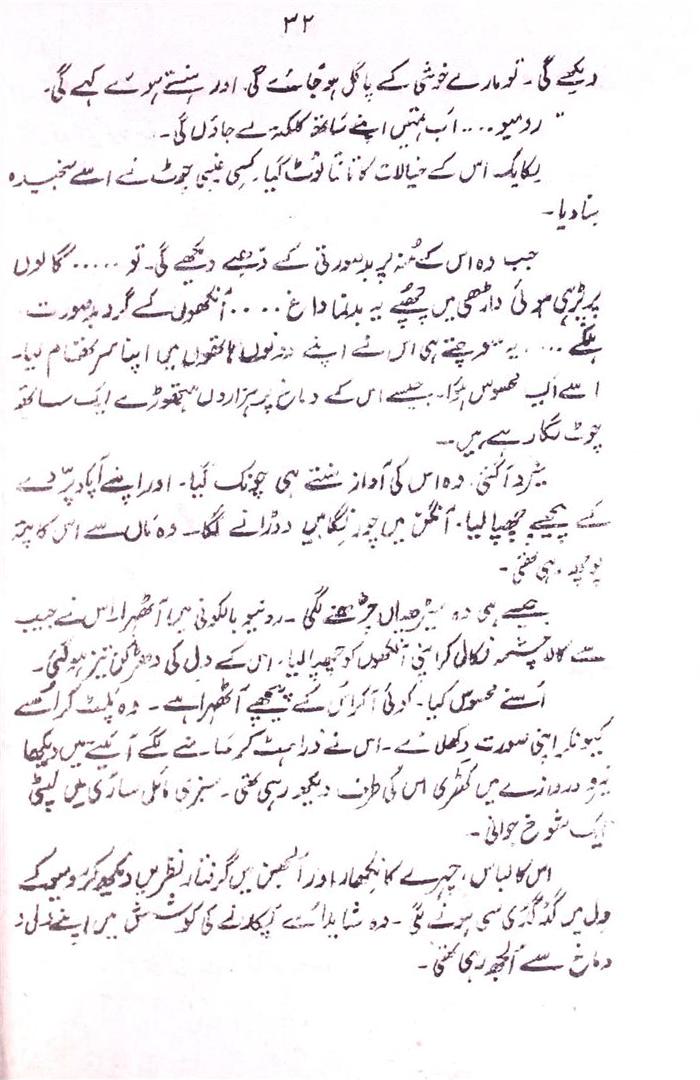 ۳۲
دیکھے گی۔ تو مارے خوشی کے پاگل ہو جائے گی۔ اور ہنستے ہوئے کہے گی۔
" رومیو.... اب تمہیں اپنے ساتھ کلکتہ لے جاؤں گی۔
یکایک اس کے خیالات کا تانتا ٹوٹ گیا۔ کسی غیبی چوٹ نے اسے سنجیدہ
بنا دیا۔
جب وہ اس کے منہ پر بدصورتی کے دھبے دیکھے گی۔ تو ..... گالوں
پر بڑھی ہوئی داڑھی میں چھپے یہ بدنما داغ .... آنکھوں کے گرد بدصورت
ہلکے .... یہ سوچتے ہی اس نے اپنے دونوں ہاتھوں میں اپنا سر تھام لیا۔
اسے ایسا محسوس ہوا۔ جیسے اس کے دماغ پر ہزاروں ہتھوڑے ایک ساتھ
چوٹ لگا رہے ہیں۔
نیرو آ گئی۔ وہ اس کی آواز سنتے ہی چونک گیا۔ اور اپنے آپ کو پردے
کے پیچھے چھپا لیا۔ آنگن میں چور نگاہیں دوڑانے لگا۔ وہ ماں سے اس کا پتہ
پوچھ رہی تھی۔
جیسے ہی وہ سیڑھیاں چڑھنے لگی۔ رومیو بالکونی میں آ ٹھہرا۔ اس نے جیب
سے کالا چشمہ نکال کر اپنی آنکھوں کو چھپا لیا۔ اس کے دل کی دھڑکن تیز ہو گئی۔
اُسنے محسوس کیا۔ کوئی آ کر اُس کے پیچھے آ ٹھہرا ہے۔ وہ پلٹ کر اُسے
کیونکر اپنی صورت دکھلائے۔ اس نے ذرا ہٹ کر سامنے لگے آئینے میں دیکھا
نیرو دروازے میں کھڑی اس کی طرف دیکھ رہی تھی۔ سبزی مائل ساڑی میں لپٹی
ایک شوخ جوانی۔
اس کا لباس، چہرے کا نکھار اور اُلجھن میں گرفتار نظریں دیکھ کر رومیو کے
دل میں گدگدی سی ہونے لگی۔ وہ شاید اسے پکارنے کی کوشش میں اپنے دل و
دماغ سے اُلجھ رہی تھی۔